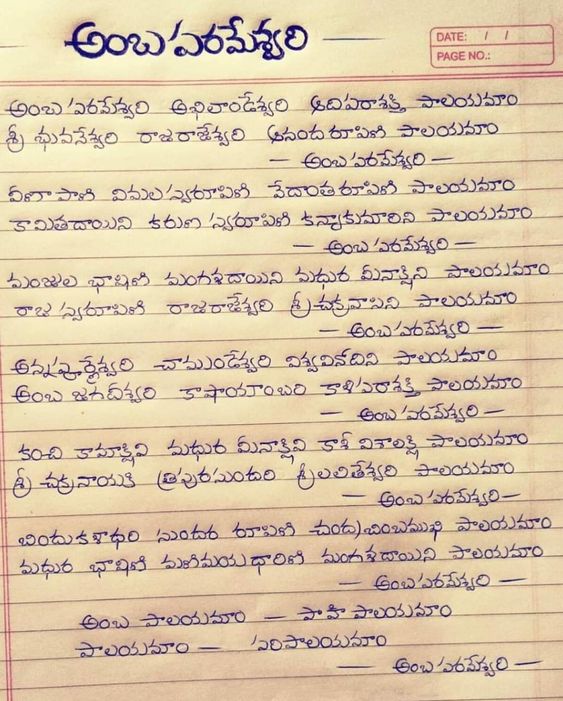 అంబ పరమేశ్వరి
DATE: / /
PAGE NO.:
అంబ పరమేశ్వరి అఖిలాండేశ్వరి ఆదిపరాశక్తి పాలయమాం
శ్రీ భువనేశ్వరి రాజరాజేశ్వరి ఆనందరూపిణి పాలయమాం
— అంబ పరమేశ్వరి —
వీణాపాణి విమలస్వరూపిణి వేదాంతరూపిణి పాలయమాం
కామితదాయిని కరుణ స్వరూపిణి కన్యాకుమారిని పాలయమాం
— అంబ పరమేశ్వరి —
మంజుల భాషిణి మంగళదాయిని మధుర మీనాక్షిని పాలయమాం
రాజ స్వరూపిణి రాజరాజేశ్వరి శ్రీచక్రవాసిని పాలయమాం
— అంబ పరమేశ్వరి —
అన్నపూర్ణేశ్వరి చాముండేశ్వరి విశ్వవినోదిని పాలయమాం
అంబ జగదీశ్వరి కాషాయాంబరి కాళిపరాశక్తి పాలయమాం
— అంబ పరమేశ్వరి —
కంచి కామాక్షివి మధుర మీనాక్షివి కాశీ విశాలక్షి పాలయమాం
శ్రీ చక్రనాయకి త్రిపురసుందరి శ్రీలలితేశ్వరి పాలయమాం
— అంబ పరమేశ్వరి —
బిందుకళాధరి సుందర రూపిణి చంద్రబింబముఖి పాలయమాం
మధుర భాషిణి మణిమయధారిణి మంగళదాయిని పాలయమాం
— అంబ పరమేశ్వరి —
అంబ పాలయమాం — పాహి పాలయమాం
పాలయమాం — పరిపాలయమాం
— అంబ పరమేశ్వరి —